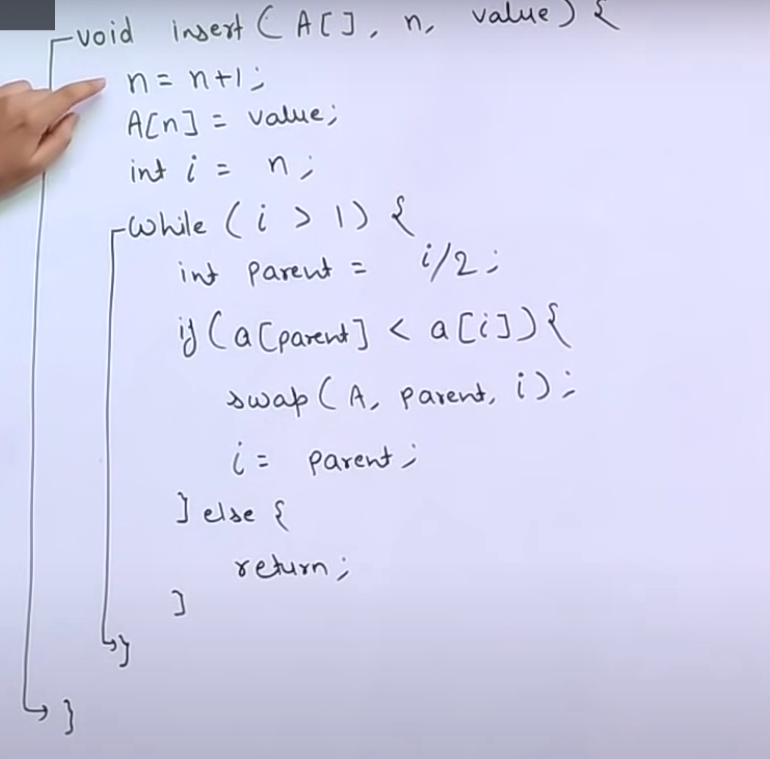 void insert ( A[], n, value) {
n = n+1;
A[n] = value;
int i = n;
while ( i > 1) {
int parent = i/2;
if (a[parent] < a[i]){
swap ( A, parent, i);
i = parent;
} else {
return;
}
}
}